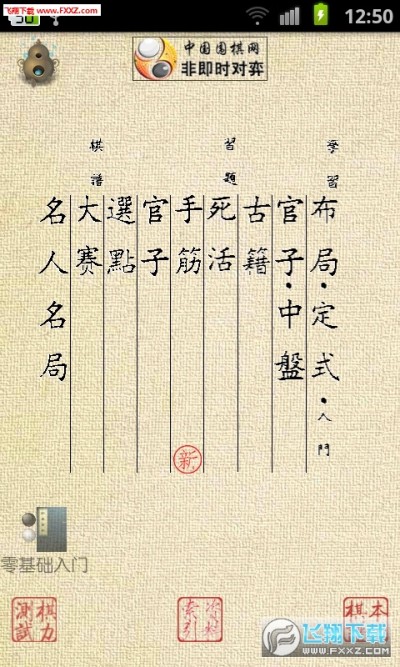 飞翔下载
www.FXXZ.com
12:50
中国围棋网
非即时对弈
學習
習題
棋譜
布局·定式·入門
官子·中盤
古籍
死活
手筋
官子
選點
大賽
名人名局
新
零基础入门
棋力
測試
索引
棋
本
飞翔下载
WWW.FXXZ.COM